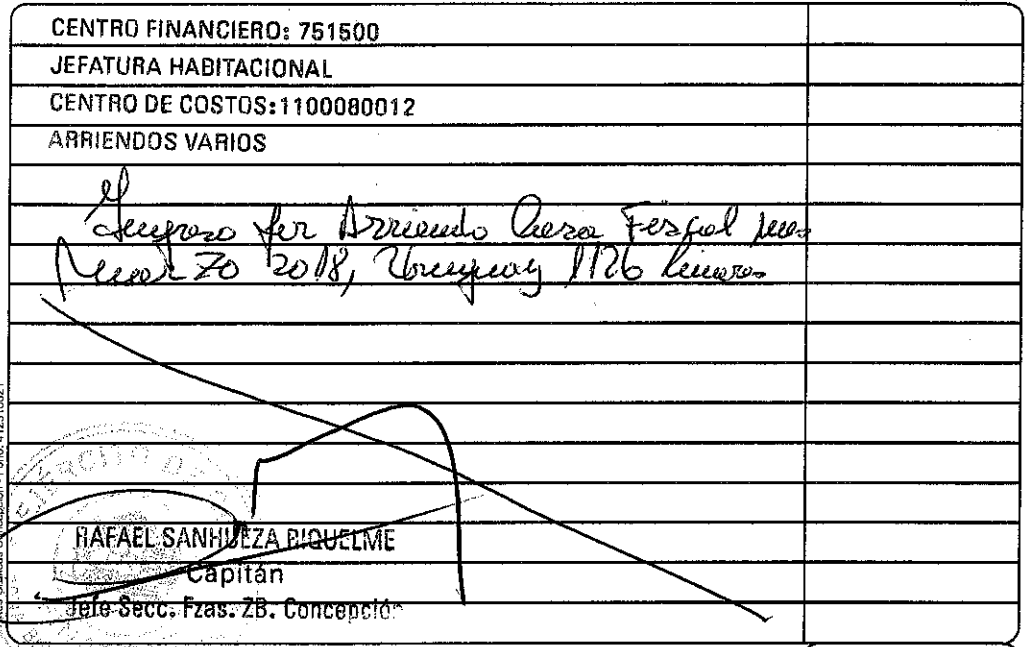 CENTRO FINANCIERO: 751500
JEFATURA HABITACIONAL
CENTRO DE COSTOS:1100080012
ARRIENDOS VARIOS
Ingreso por Arriendo Casa Fiscal mes
Marzo 2018, Uruguay 1126 Linares
EJÉRCITO DE
RAFAEL SANHUEZA RIQUELME
Capitán
Jefe Secc. Fzas. ZB. Concepción